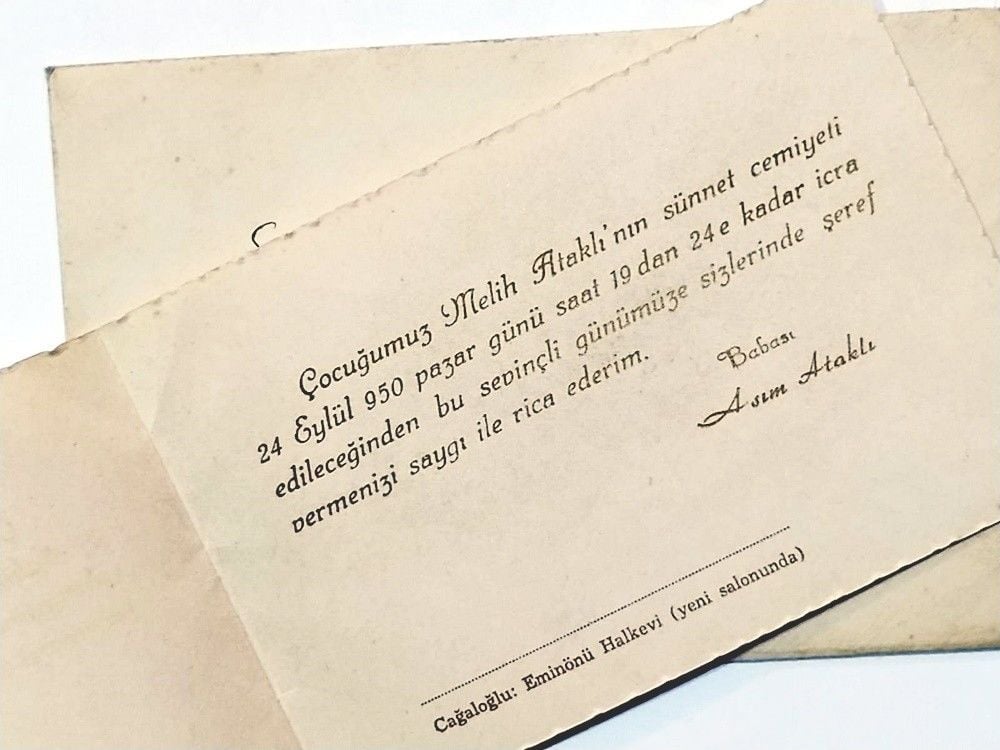 Çocuğumuz Melih Ataklı'nın sünnet cemiyeti
24 Eylül 950 pazar günü saat 19 dan 24 e kadar icra
edileceğinden bu sevinçli günümüze sizlerinde şeref
vermenizi saygı ile rica ederim.
Babası
Asım Ataklı
Çağaloğlu: Eminönü Halkevi (yeni salonunda)